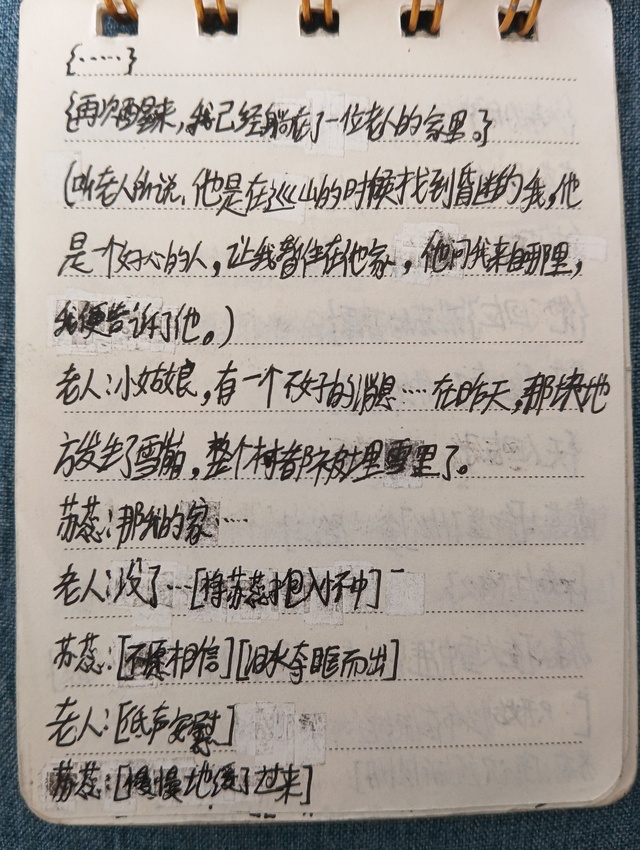 {……}
{再次醒来，我已经躺在了一位老人的家里。}
(听老人所说，他是在巡山的时候找到昏迷的我，他
是一个好心的人，让我暂住在他家，他问我来自哪里，
我便告诉了他。)
老人：小姑娘，有一个不好的消息…在昨天，那块地
方发生了雪崩，整个村都被埋雪里了。
苏蕊：那我的家……
老人：没了…[将苏蕊抱入怀中]
苏蕊：[不愿相信][泪水夺眶而出]
老人：[低声安慰]
苏蕊：[慢慢地缓了过来]